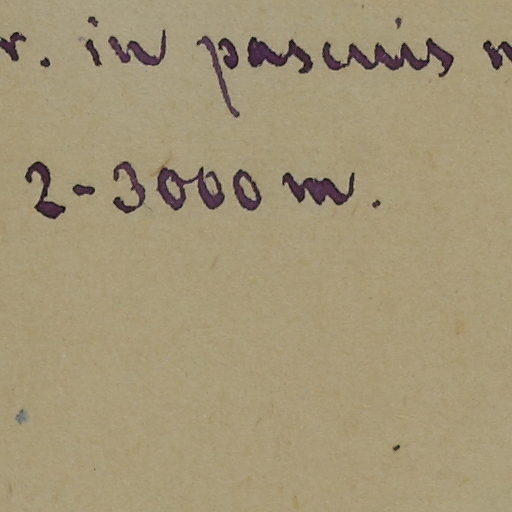 r. in pascuis
2-3000 m.